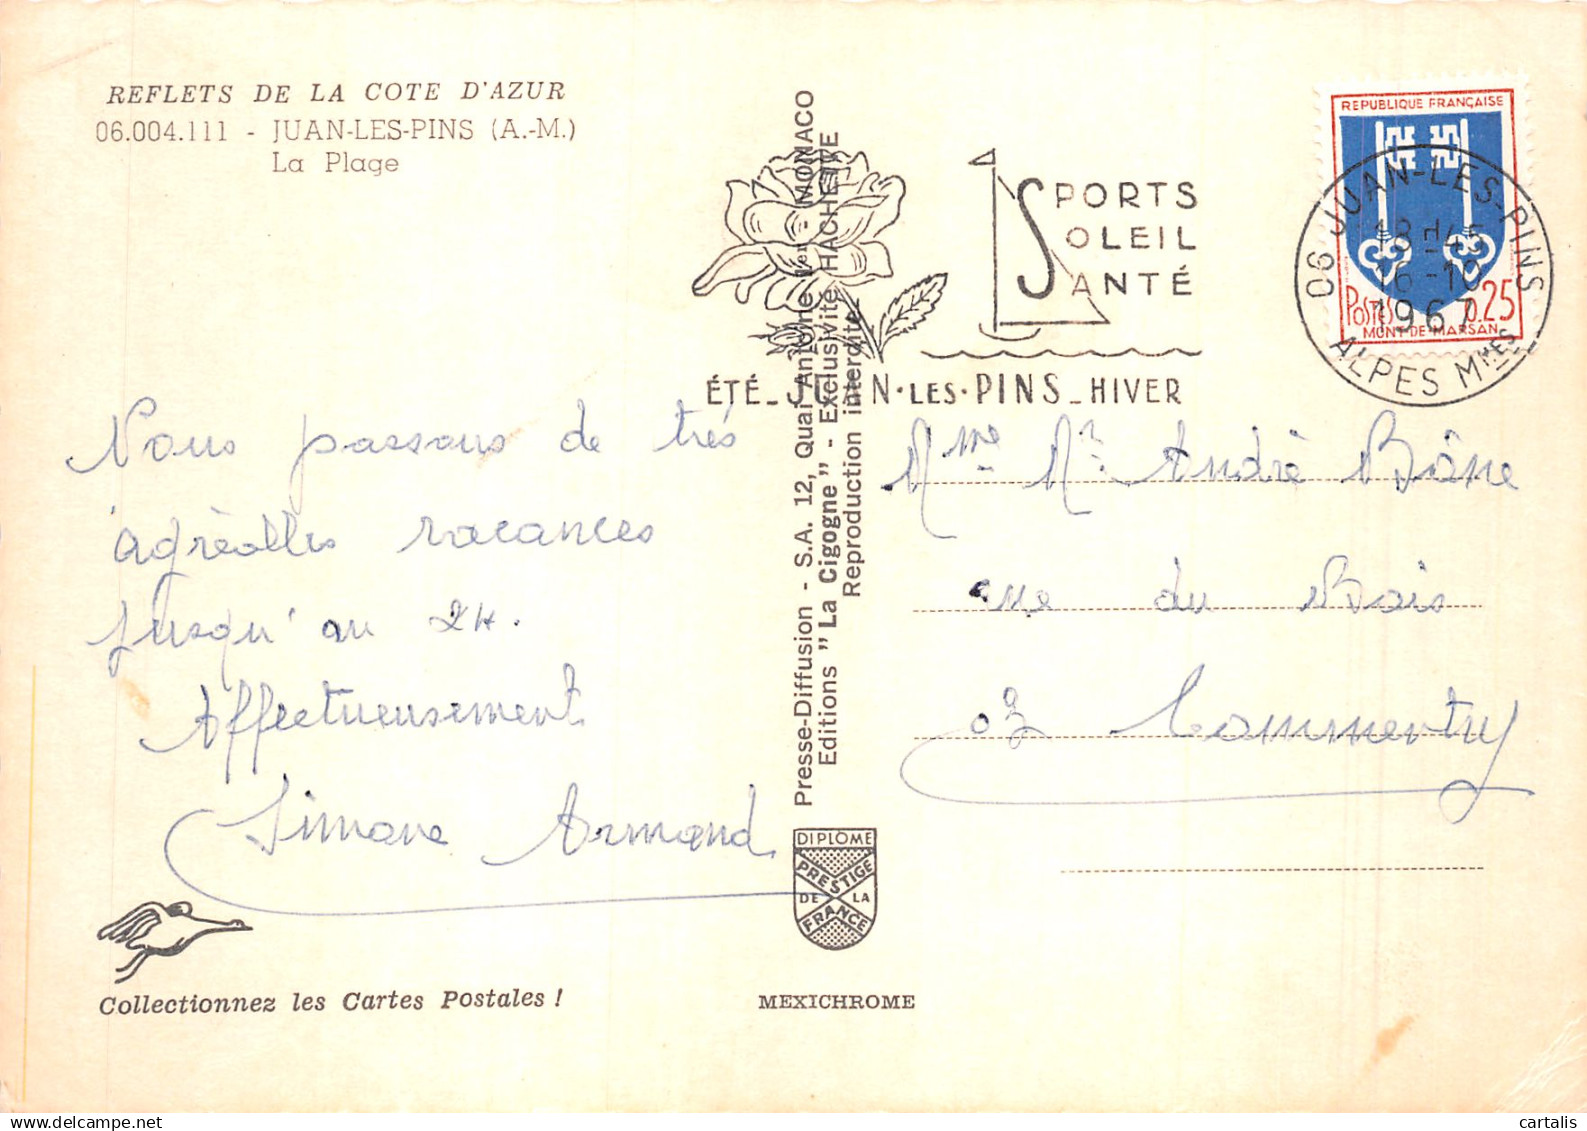 REFLETS DE LA COTE D'AZUR
06.004.111 - JUAN-LES-PINS (A.-M.)
La Plage
SPORTS
SOLEIL
SANTÉ
ÉTÉ_JUAN·LES·PINS_HIVER
REPUBLIQUE FRANÇAISE
POSTES 0.25
MONT-DE-MARSAN
06 JUAN-LES-PINS
18H45
16-10
1967
ALPES MMES
Nous passons de très
agréables vacances
jusqu'au 24.
Affectueusement
Simone Armand
Mme Mr André Bône
rue du Bois
03 Commentry
Presse-Diffusion - S.A. 12, Quai Antoine 1er - MONACO
Editions "La Cigogne" - Exclusivité HACHETTE
Reproduction interdite.
DIPLOME
PRESTIGE
DE LA
FRANCE
Collectionnez les Cartes Postales !
MEXICHROME
cartalis